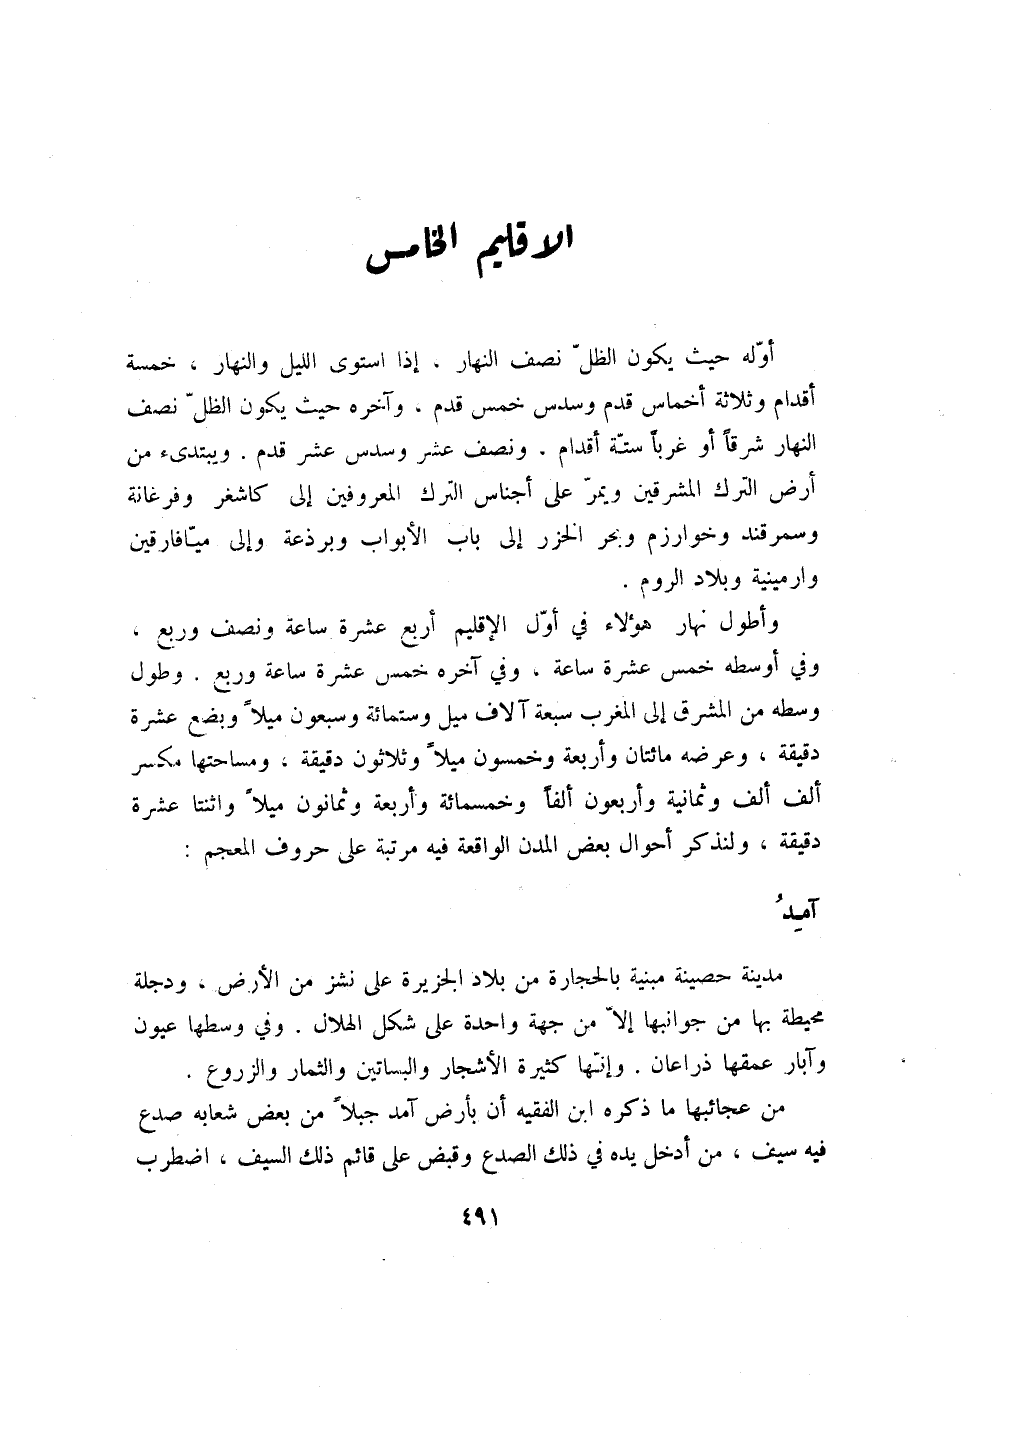 الاقليم الخامس
أوّله حيث يكون الظلّ نصف النهار ، إذا استوى الليل والنهار ، خمسة
أقدام وثلاثة أخماس قدم وسدس خمس قدم ، وآخره حيث يكون الظلّ نصف
النهار شرقاً أو غرباً ستّة أقدام . ونصف عشر وسدس عشر قدم . ويبتدىء من
أرض الترك المشرقين ويمرّ على أجناس الترك المعروفين إلى كاشغر وفرغانة
وسمرقند وخوارزم وبحر الخزر إلى باب الأبواب وبرذعة وإلى ميّافارقين
وارمينية وبلاد الروم .
وأطول نهار هؤلاء في أوّل الإقليم أربع عشرة ساعة ونصف وربع ،
وفي أوسطه خمس عشرة ساعة ، وفي آخره خمس عشرة ساعة وربع . وطول
وسطه من المشرق إلى المغرب سبعة آلاف ميل وستمائة وسبعون ميلاً وبضع عشرة
دقيقة ، وعرضه مائتان وأربعة وخمسون ميلاً وثلاثون دقيقة ، ومساحتها مكسر
ألف ألف وثمانية وأربعون ألفاً وخمسمائة وأربعة وثمانون ميلاً واثنتا عشرة
دقيقة ، ولنذكر أحوال بعض المدن الواقعة فيه مرتبة على حروف المعجم :
آمِدُ
مدينة حصينة مبنية بالحجارة من بلاد الجزيرة على نشز من الأرض ، ودجلة
محيطة بها من جوانبها إلاّ من جهة واحدة على شكل الهلال . وفي وسطها عيون
وآبار عمقها ذراعان . وإنّها كثيرة الأشجار والبساتين والثمار والزروع .
من عجائبها ما ذكره ابن الفقيه أن بأرض آمد جبلاً من بعض شعابه صدع
فيه سيف ، من أدخل يده في ذلك الصدع وقبض على قائم ذلك السيف ، اضطرب
٤٩١